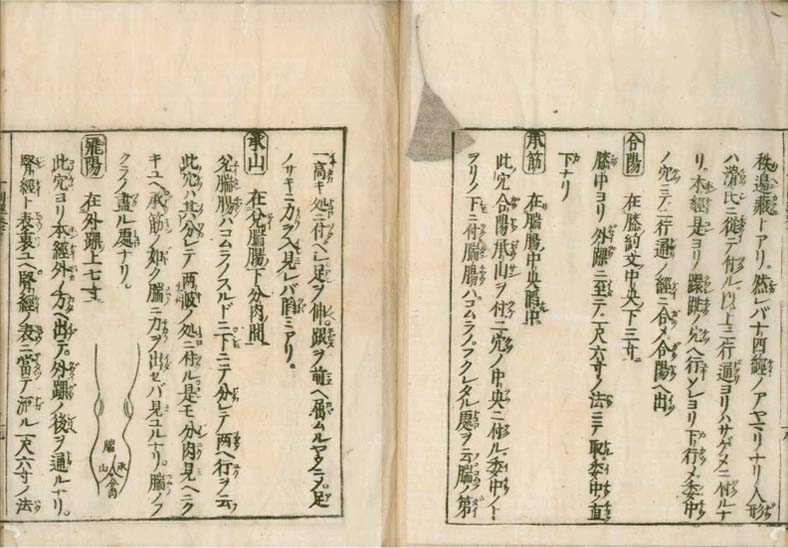 秩邉藏トアリ。然レバ十四經ノアヤマリナリ人形
ハ滑氏ニ從テ付ル。以上二行通ヨリハサゲメニ付ルナ
リ。本經是ヨリ環跳ノ穴ヘ行メレヨリ下行メ委中
ノ穴ニテ二行通ノ經ニ合メ合陽ヘ出
合陽 在膝約文中央下三寸
膝中ヨリ外踝ニ至テ一尺六寸ノ法ニテ取委中直
下ナリ
承筋 在腨腸中央陷中
此穴合陽承山ヲ付二穴ノ中央ニ付ル委中ノト
ヲリノ下ニ付腨腸ハコムラノフクレタル處ヲ云腨ノ第
一高キ処ニ付ベシ足ヲ伸。踵ヲ前ヘ屈ムルヤウニメ足
ノサキニカヲ入見レバ陷ミアリ。
承山 在兊腨腸下分肉間
兊腨腸ハコムラノスルドニ下ニテ分レテ両ヘ行ヲ云
此穴ハ其分レテ両岐ノ処ニ付ル是モ分肉見ヘニク
キユヘ承筋ノ如ク腨ニカヲ出セバ見ユルナリ。腨ノフ
クラノ盡ル處ナリ
腨
承山
分肉
飛陽 在外踝上七寸
此穴ヨリ本經外ノ方ヘ出テ。外踝ノ後ヲ通ルナリ。
腎經ト表裏ユヘ。腎經ノ表ニ當テ洒ル一尺六寸ノ法